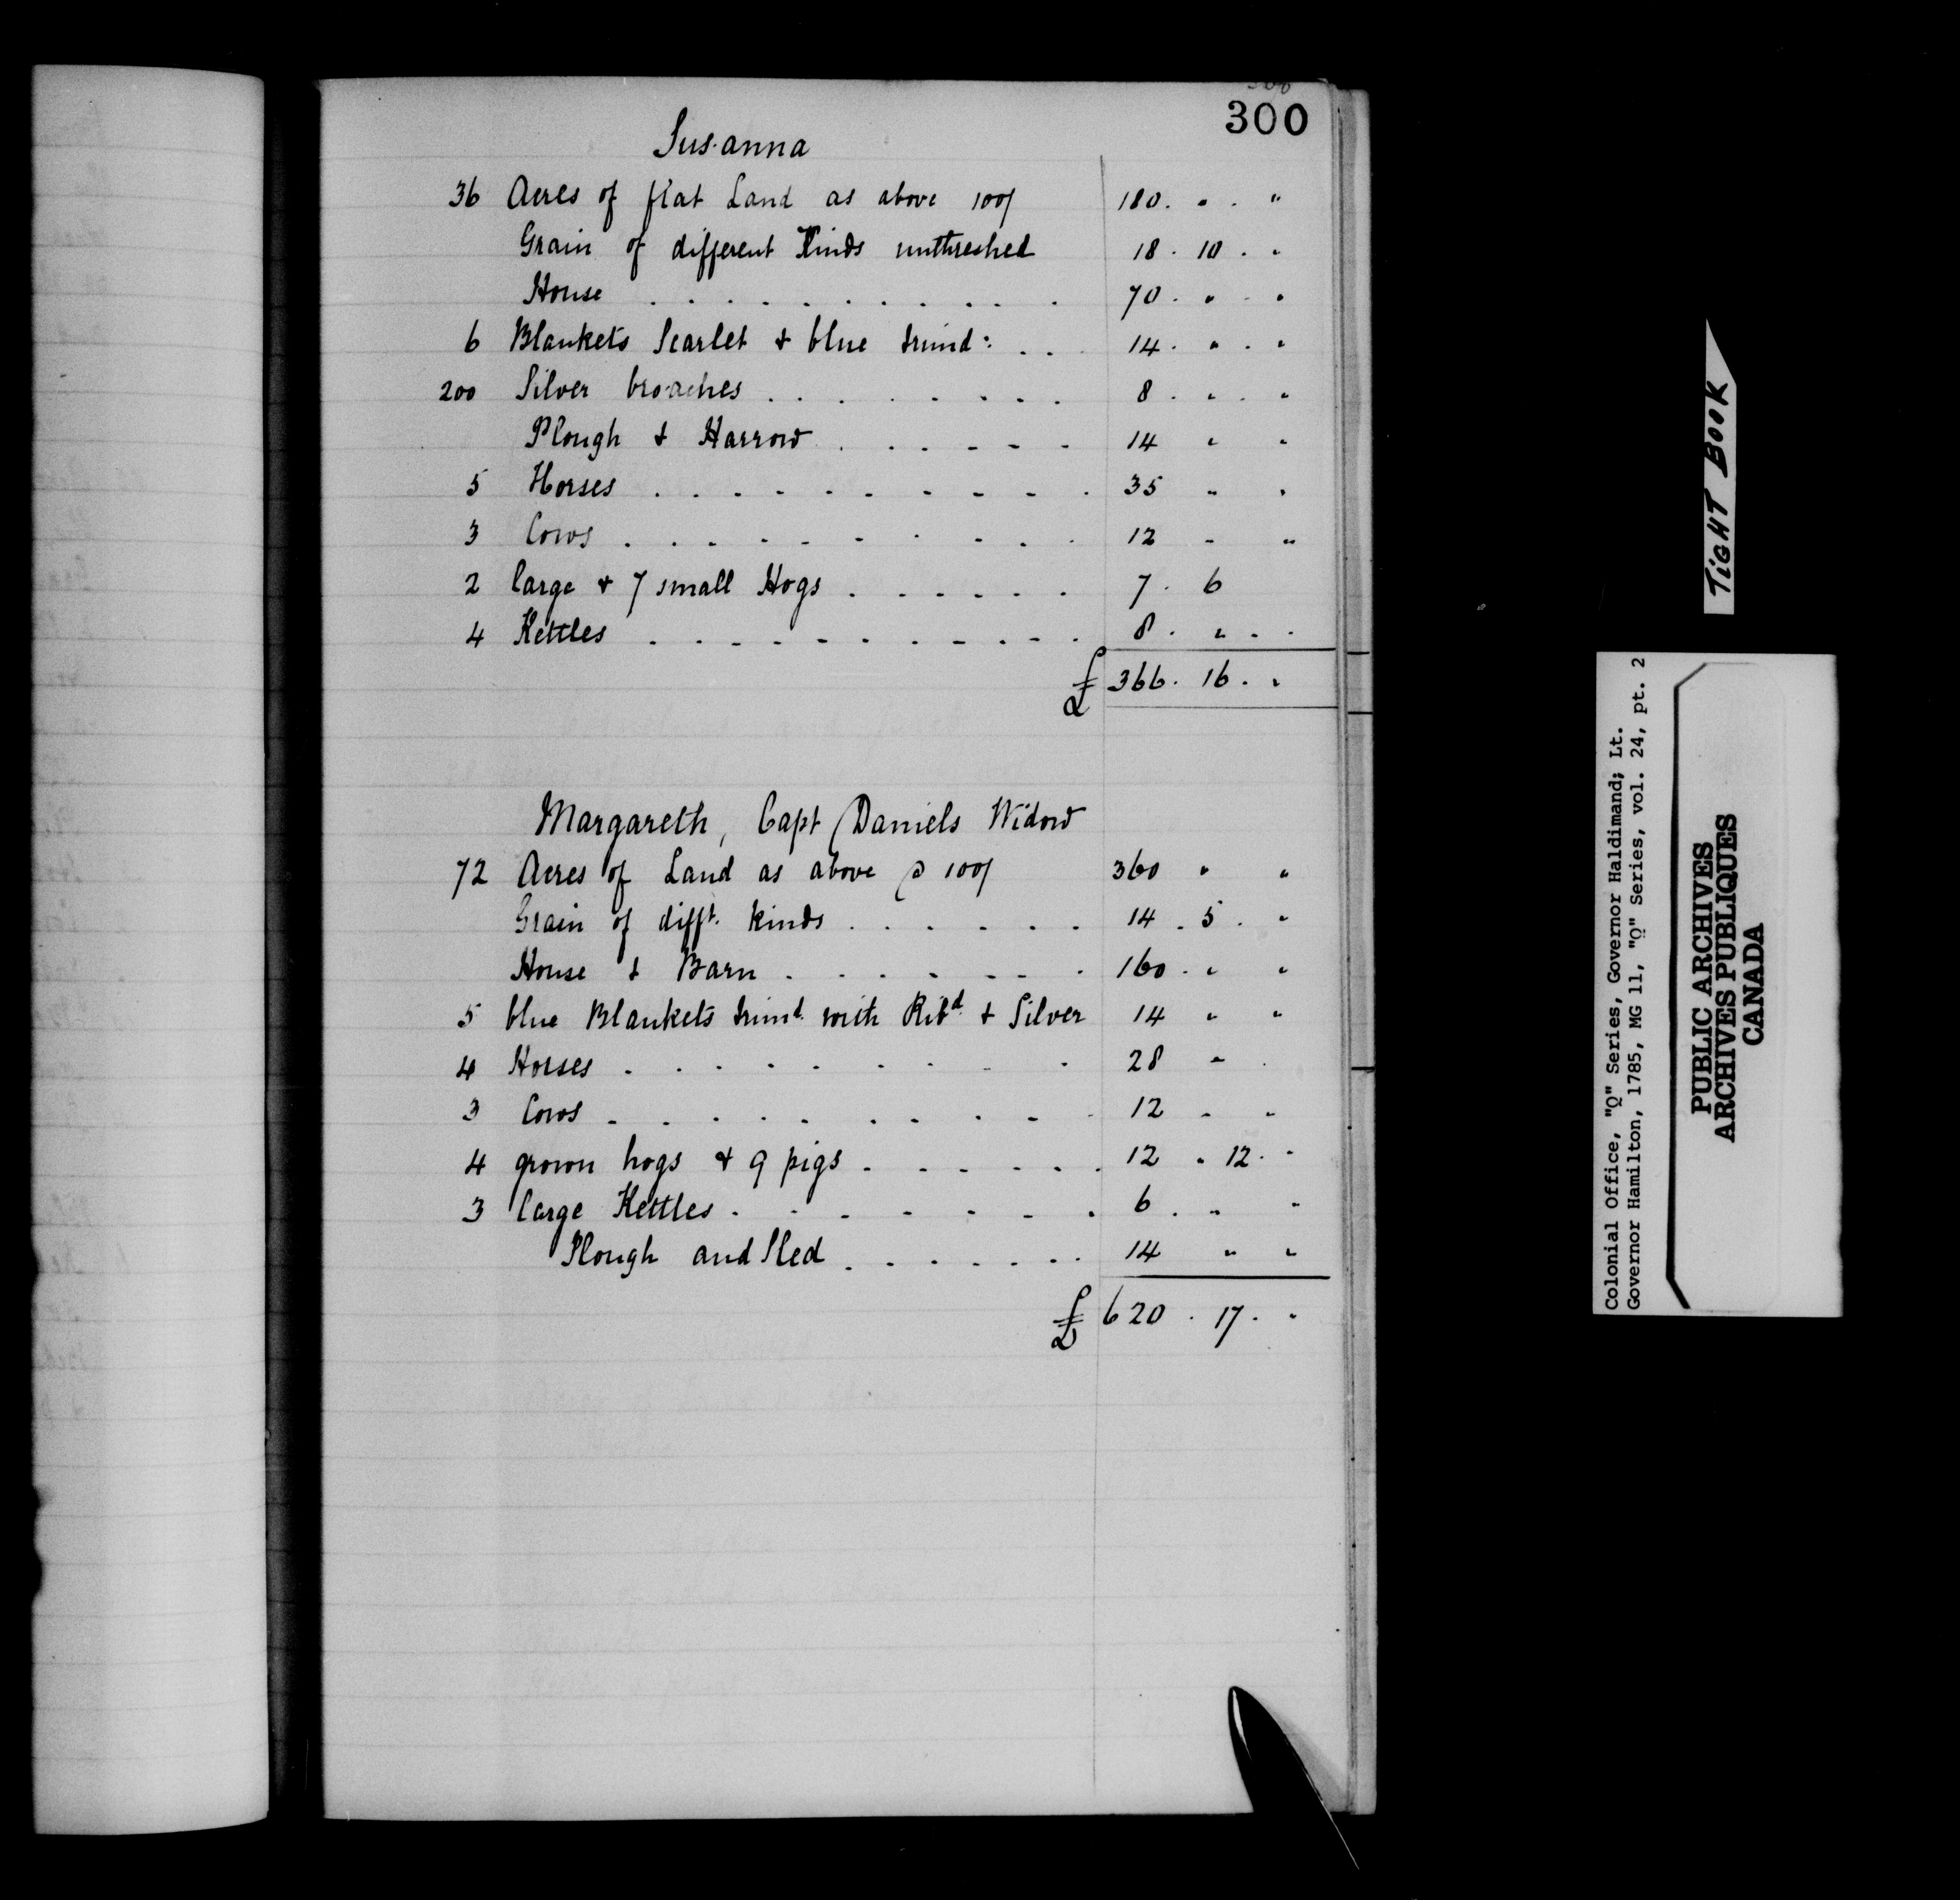 300
Susanna
36 Acres of flat Land as above 100/ 180. " . "
Grain of different Kinds unthreshed 18 . 10 . "
House . . . . . . . . . . 70 . " . "
6 Blankets Scarlet & blue trimd: . . . 14 . " . "
200 Silver broaches . . . . . . . . 8 . " . "
Plough & Harrow . . . . . . 14 " "
5 Horses . . . . . . . . . . 35 " "
3 Cows . . . . . . . . . . 12 " "
2 large & 7 small Hogs . . . . . . 7 . 6
4 Kettles . . . . . . . . . . 8 . " . .
£ 366 . 16 . "
Margareth, Capt Daniels Widow
72 Acres of Land as above @ 100/ 360 " "
Grain of difft. kinds . . . . . . 14 . 5 . "
House & Barn . . . . . . . 160 . " "
5 blue Blankets trimd. with Ribd. & Silver 14 " "
4 Horses . . . . . . . . . 28 " .
3 Cows . . . . . . . . . . 12 " "
4 grown hogs & 9 pigs . . . . . . 12 . 12 . "
3 large Kettles . . . . . . . . 6 . " "
Plough and Sled . . . . . . . 14 " "
£ 620 . 17 . "
TIGHT BOOK
Colonial Office, "Q" Series, Governor Haldimand; Lt.
Governor Hamilton, 1785, MG 11, "Q" Series, vol. 24, pt. 2
PUBLIC ARCHIVES
ARCHIVES PUBLIQUES
CANADA